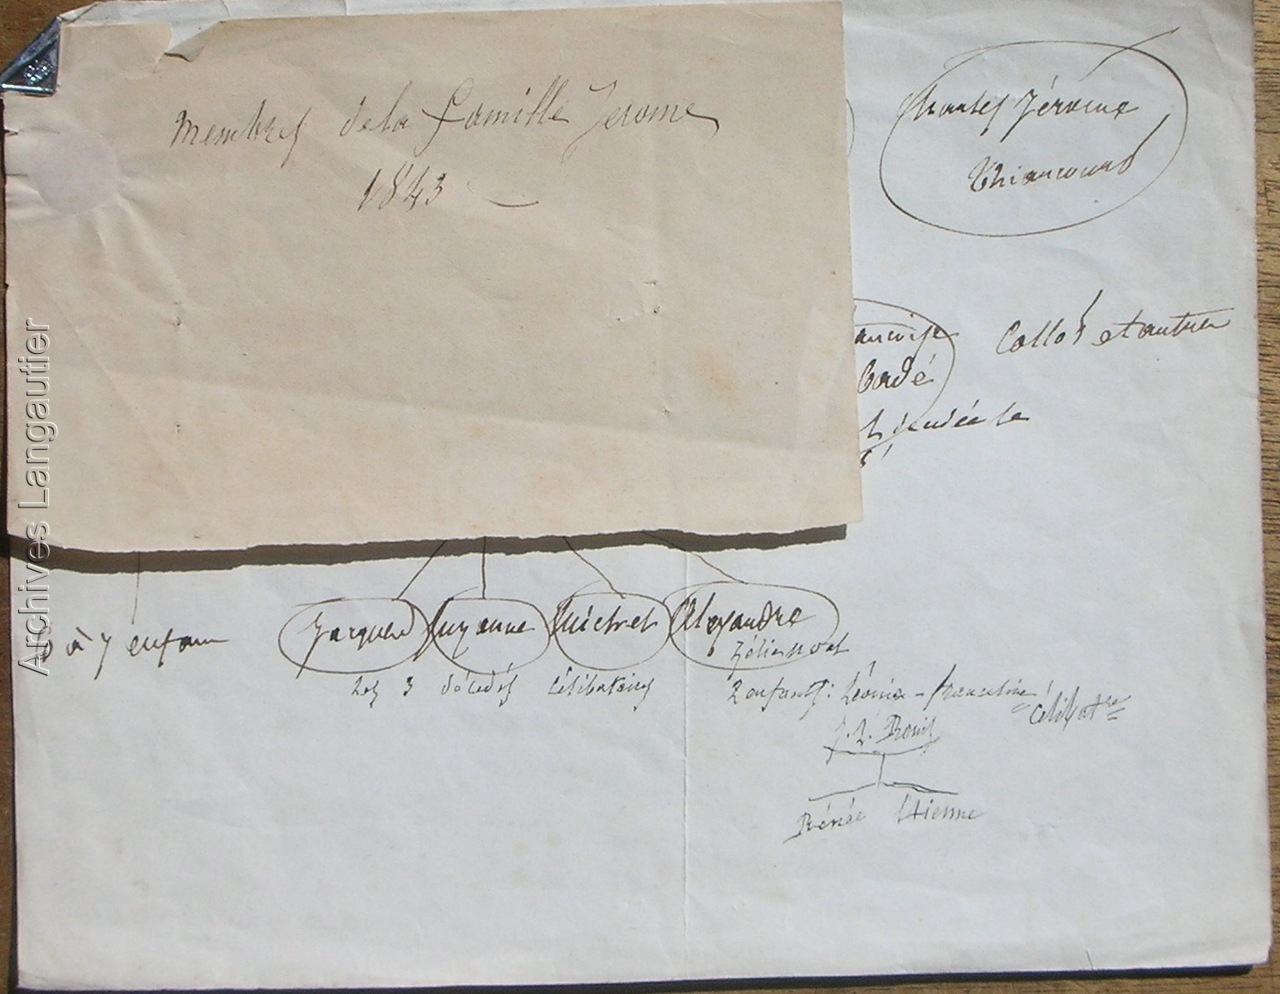 Membres de la famille Jerome
1843
Charles Jérome
Thiaucourt
ancoise
Badé
Collot et autres
6 à 7 enfans
Jacques Suzanne Michel Alexandre
les 3 décédés célibataires
2 enfants: Léonie - franceline célibatre
Renée Etienne
Archives Langautier